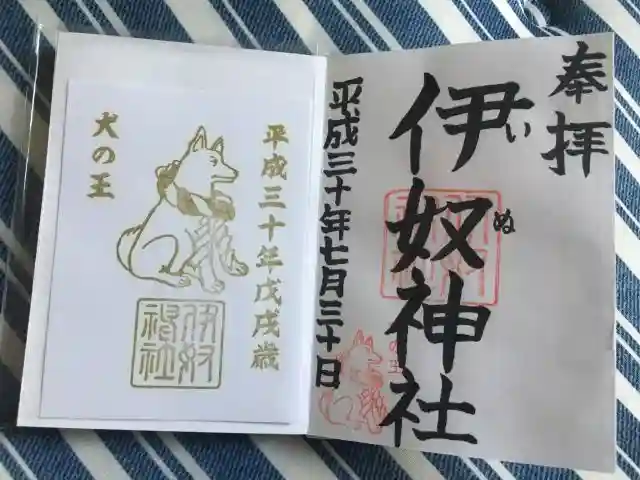 奉拝
伊奴神社
いぬ
平成三十年七月三十日
の王
平成三十年戊戌歳
犬の王
伊奴
神社